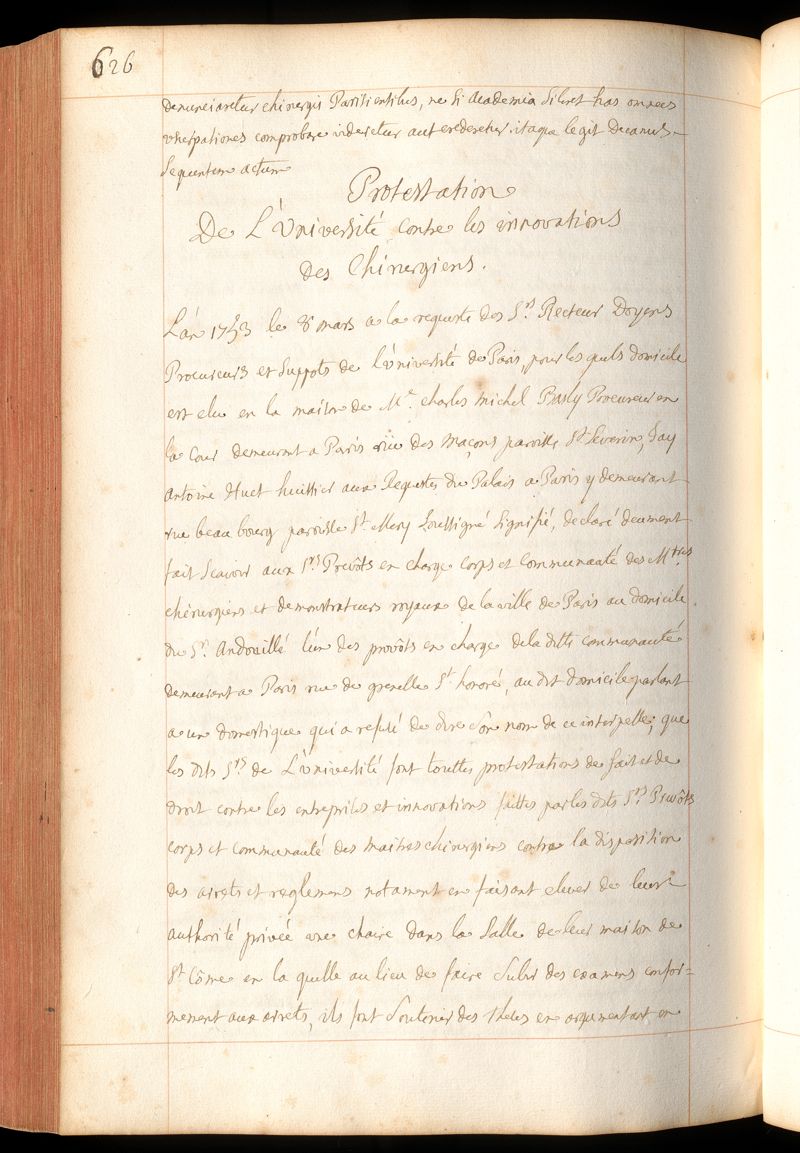 626
denunciaretur chirurgis Parisiensibus, ne si academia sileret has omnes
vsurpationes comprobare videretur aut crederetur. itaque legit decanus
sequentem actum
Protestation
De L'université contre les innovations
des Chirurgiens.
L'an 1743 le 8 mars a la requeste des Srs Recteur Doyens
Procureurs et suppots de l'université de Paris, pour les quels domicile
est elu en la maison de Me charles michel Basly Procureur en
la Cour demeurant a Paris rüe des maçons paroisse St Severin, J'ay
Antoine Huet huissier aux Requetes du Palais a Paris y demeurant
rue beaubourg paroisse St Mery soussigné signifié, declaré deument
fait scavoir aux Srs Prevôts en charge corps et communauté des Mtres
chirurgiens et demonstrateurs royaux de la ville de Paris au domicile
du Sr. Andouillé l'un des prevôts en charge de la ditte communauté
demeurant a Paris rue de grenelle St honoré, au dit domicile parlant
a un domestique qui a refusé de dire son nom de ce interpellé, que
les dits Srs de L'université font touttes protestations de fait et de
droit contre les entreprises et innovations faittes par les dits Srs Prevôts
corps et communauté des maitres chirurgiens contre la disposition
des arrets et reglemens notament en faisant elever de leur
authorité privée une chaire dans la salle de leur maison de
St Côme en la quelle au lieu de faire subir des examens confor=
mement aux arrêts, ils font soutenir des theses en argumentant en